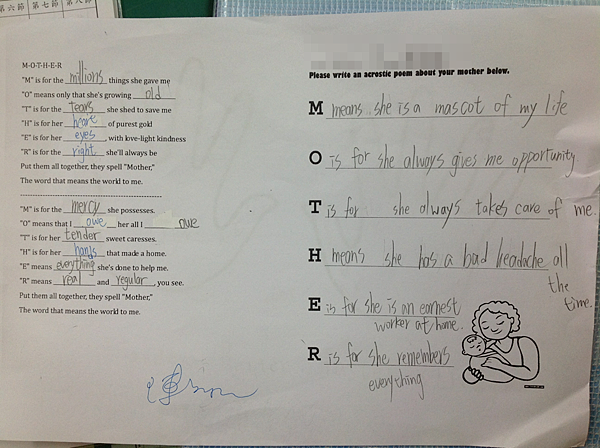 第六節 第七節 第八節
M-O-T-H-E-R
"M" is for the millions things she gave me
"O" means only that she's growing old
"T" is for the tears she shed to save me
"H" is for her heart of purest gold
"E" is for her eyes, with love-light kindness
"R" is for the right she'll always be
Put them all together, they spell "Mother,"
The word that means the world to me.
"M" is for the mercy she possesses.
"O" means that I owe her all I owe
"T" is for her tender sweet caresses.
"H" is for her hands that made a home.
"E" means everything she's done to help me.
"R" means real and regular, you see.
Put them all together, they spell "Mother,"
The word that means the world to me.
Please write an acrostic poem about your mother below.
M means she is a mascot of my life
O is for she always gives me opportunity.
T is for she always takes care of me.
H means she has a bad headache all
the
time.
E is for she is an earnest
worker at home.
R is for she remembers
everything